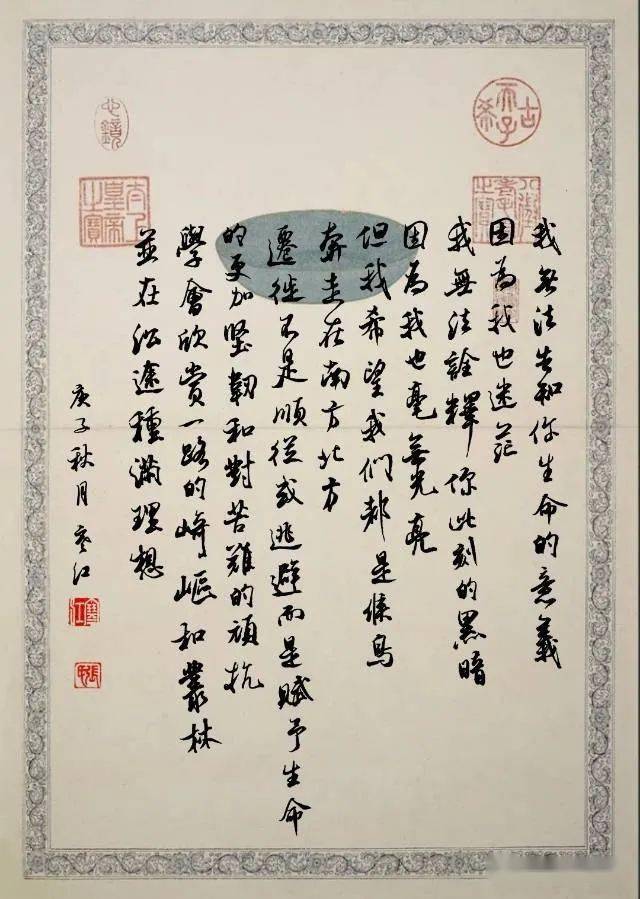 古希天子
八徵耄念之寶
太上皇帝之寶
我無法告知你生命的意義
因為我也迷茫
我無法詮釋你此刻的黑暗
因為我也毫無光亮
但我希望我們都是候鳥
奔走在南方北方
遷徙不是順從或逃避而是賦予生命
的更加堅韌和對苦難的頑抗
學會欣賞一路的崎嶇和叢林
並在沿途種滿理想
庚子秋月寒江
寒江